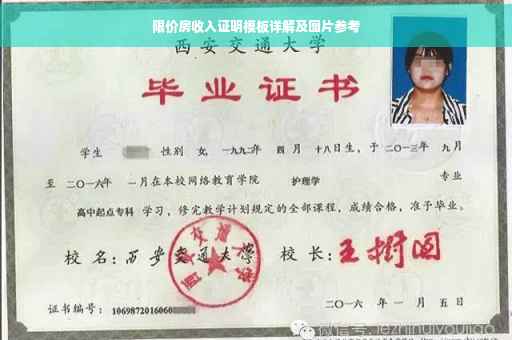 限价房收入证明模板详解及图片参考
西安交通大学
毕业证书
学生 性别 女，一九九二年 四 月 十八日生，于 二〇一三年 九月
至 二〇一六年 一月在本校网络教育学院 护理学 专业
高中起点专科 学习，修完教学计划规定的全部课程，成绩合格，准予毕业。
校 名：西安交通大学 校 长：王树国
证书编号：1069872016060
二〇一六 年 一 月 五 日
微信号: jezhihuiyoujiao